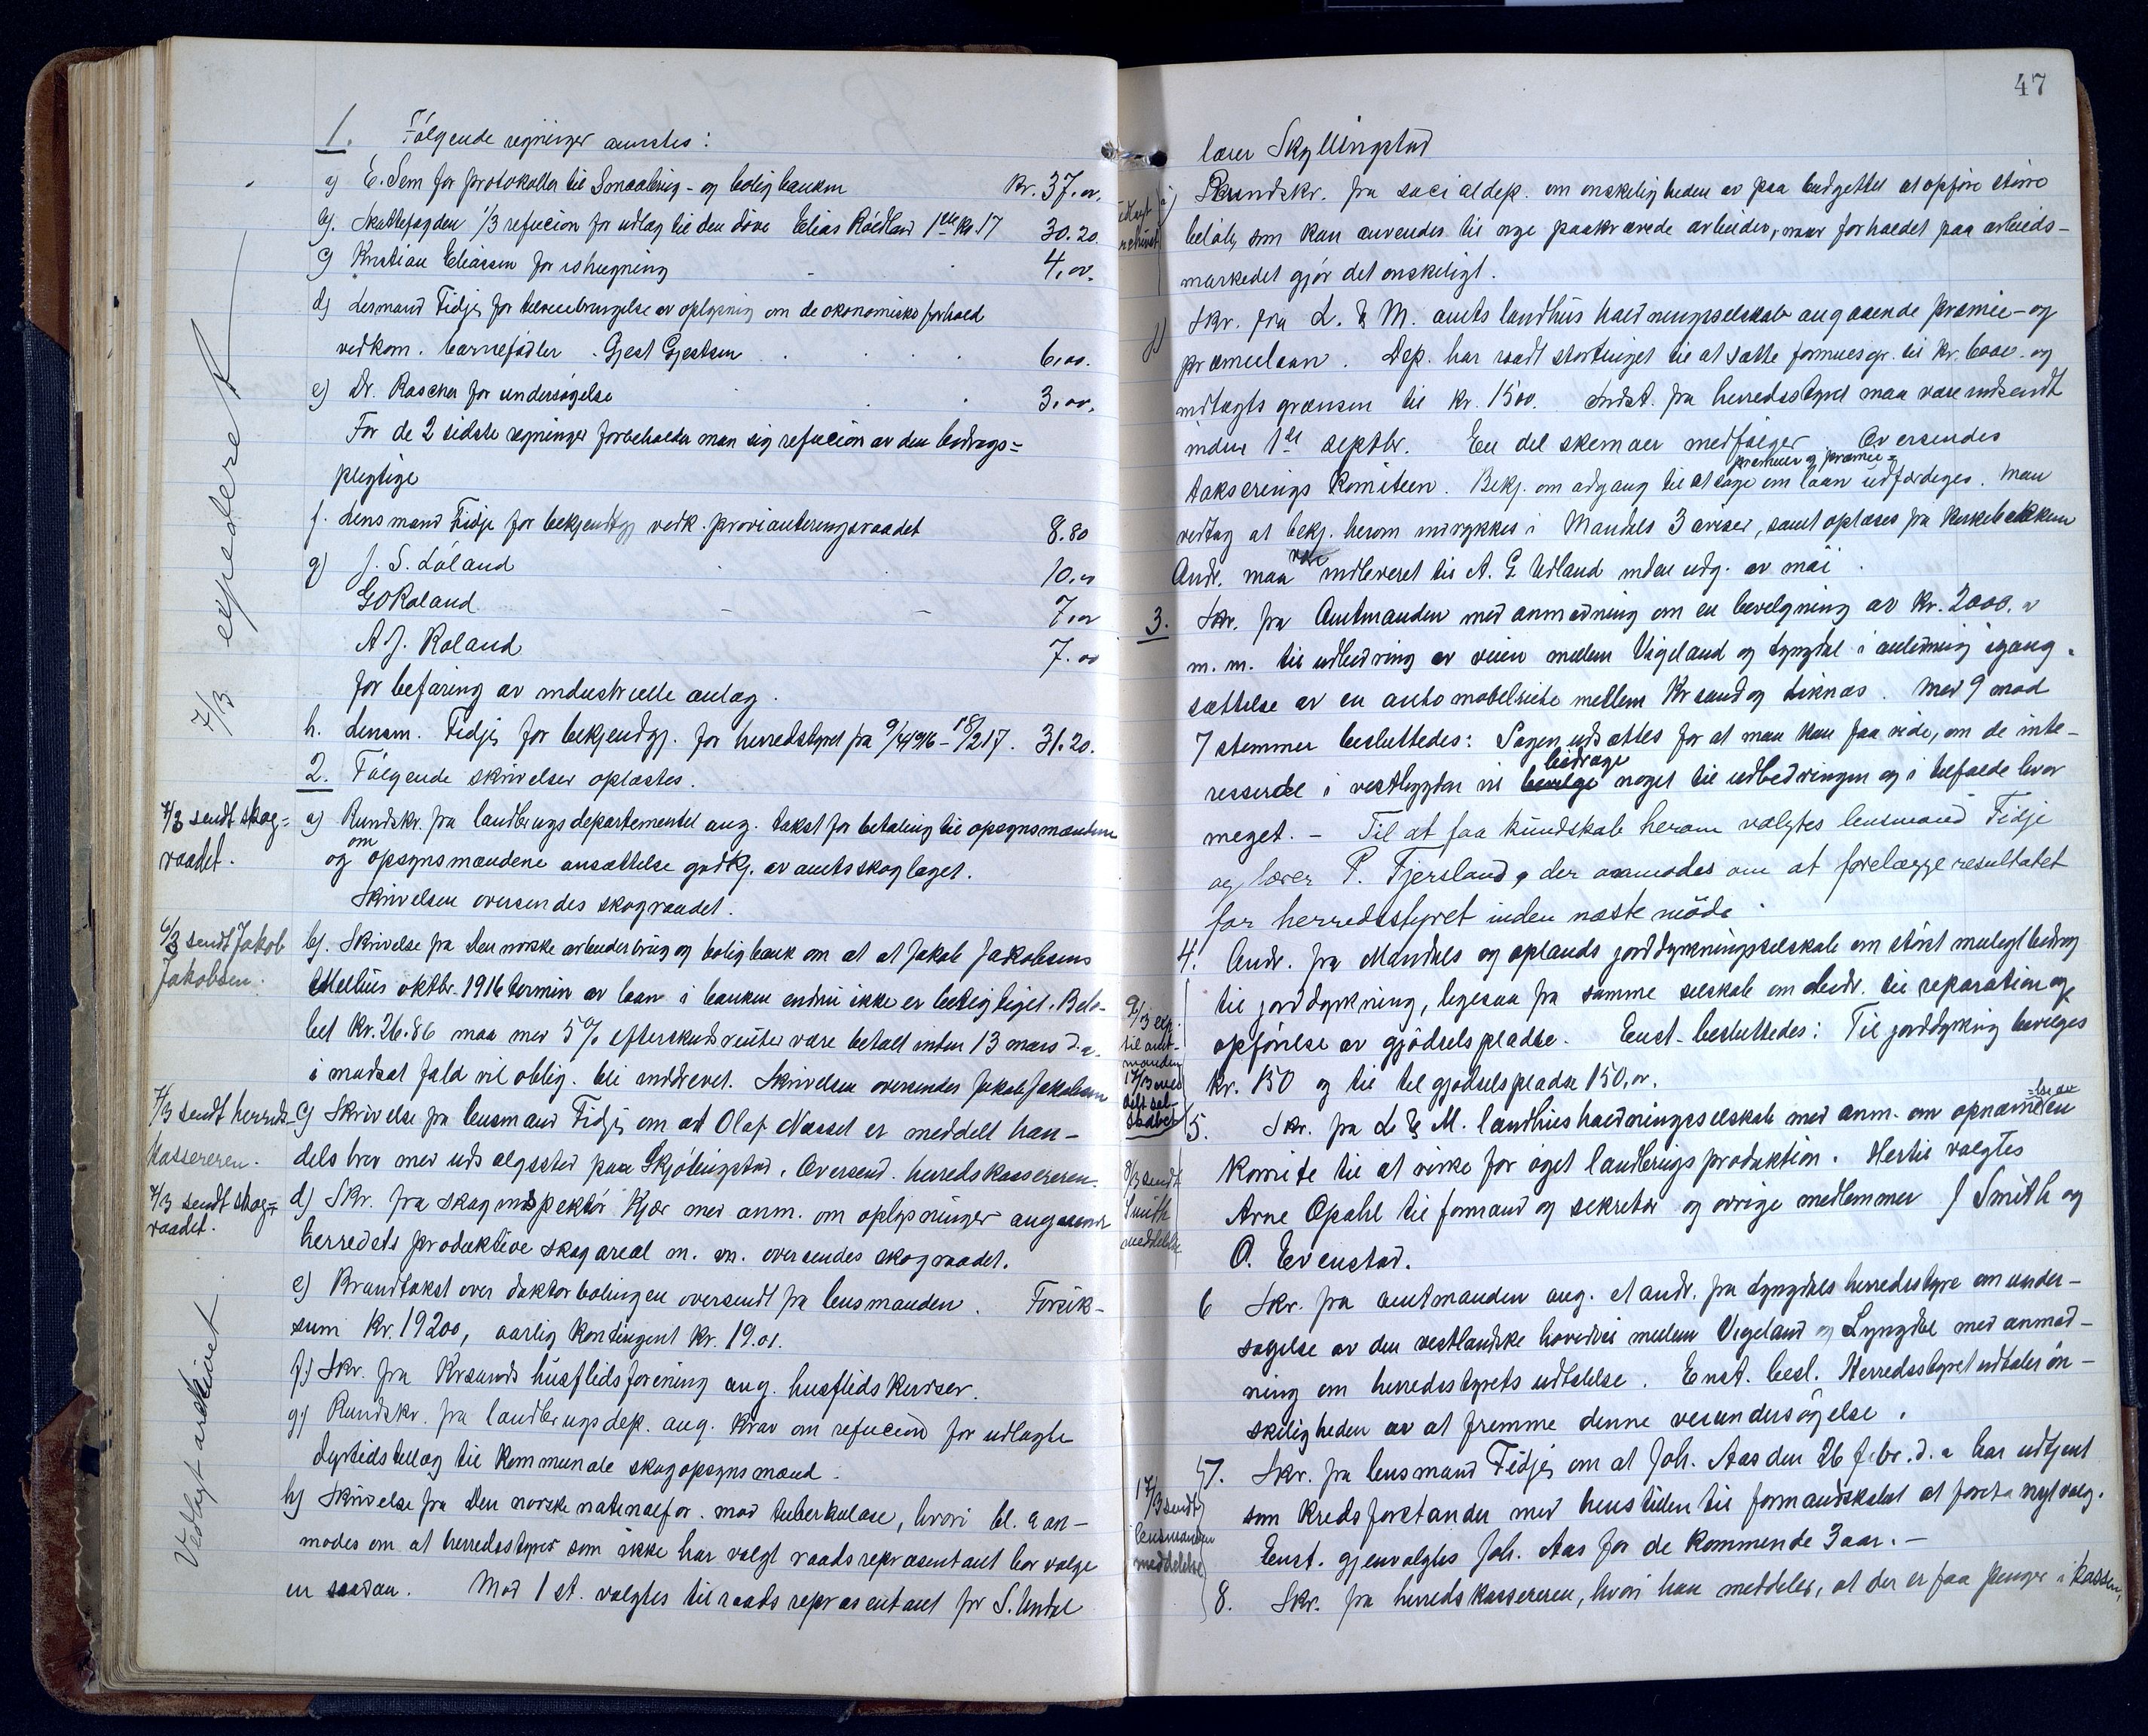 1. Følgende regninger anvistes:
a) E. Sem for protokoller til Smaabrug- og boligbanken kr. 37.00.
b). Skattefogden 1/3 refucion for udlag til den døve Elias Roédland 1ste kv. 17 30.20.
c) Kristian Eliassen for ishugning 4.00.
d) Lensmand Fidje for tilveiebringelse av oplysning om de økonomiske forhold
vedkom. barnefader Gjest Gjestsen 6.00.
e) Dr. Rascher for undersøgelse 3.00.
For de 2 sidste regninger forbeholder man sig refucion av den bidrags=
plegtige
f. Lensmand Fidje for bekjendtgj vedk. provianteringsraadet 8.80
g) J. S. Löland 10.00
G O Roland 7.00
A J. Roland 7.00
for befaring av industrielle anlæg.
h. Lensm. Fidje for bekjendgj. for herredstyret fra 9/4 1916 - 18/2 17. 31.20.
7/3 expederet
2. Følgende skrivelser oplæstes.
7/3 sendt skog=
raadet.
a) Rundskr. fra landbrugsdepartementet ang. takst for betaling til opsynsmændene
og om opsynsmændene ansættelse godkj. av amtsskoglaget.
Skrivelsen oversendes skograadet.
6/3 sendt Jakob
Jakobsen.
b). Skrivelse fra Den norske arbeiderbrug og boligbank om at at Jakob Jakobsens
Mellius oktbr. 1916 termin av laan i banken endnu ikke er betigtiget. Belø-
bet kr. 26.86 maa med 5% efterskudsrenter være betalt inden 13 mars d. a.
i modsat fald vil oblig. bli inddrevet. Skrivelsen oversendes Jakob Jakobsen
7/3 sendt herreds-
kassereren.
c) Skrivelse fra lensmand Fidje om at Olaf Næsset er meddelt han-
delsbrev med udsalgssted paa Skjölingstad. Oversend. herredskassereren.
7/3 sendt skog=
raadet.
d) Skr. fra skoginspektör Kjær med anm. om oplysninger angaaende
herredets produktive skogareal m. m. oversendes skograadet.
e) Brandtakst over doktorboligen oversendt fra lensmanden. Forsik-
sum kr. 19200, aarlig kontingent kr. 19.01.
f.) Skr. fra Krsands husflidsforening ang. husflidskurser.
g) Rundskr. fra landbrugsdep. ang. krav om refucion for udlagte
dyrtidstillæg til kommunale skogopsynsmænd.
h) Skrivelse fra Den norske nationalfor. mod tuberkulose, hvori bl. a an-
modes om at herredsstyrer som ikke har valgt raadsrepræsentant bør vælge
en saadan. Mod 1 st. valgtes til raadsrepræsentant for S. Undal
Vedlagt arkivet
47
lærer Skyllingstad
i) Rundskr. fra socialdep. om ønskeligheden av paa budgettet at opføre større
beløb, som kan anvendes til nye paakrævede arbeider, naar forholdet paa arbeids-
markedet gjör det ønskeligt.
j) Skr. fra L. & M. amts landhusholdningsselskab angaaende præmie- og
præmielaan. Dep. har raadt stortinget til at sætte formuesgr. til kr. 6000. og
indtægtsgrænsen til kr. 1500. Indst. fra herredsstyret maa være indsendt
inden 1ste septbr. En del skemaer medfølger. Oversendes
præmier og præmie=
takseringskomiteen. Bekj. om adgang til at søge om laan udfærdiges. Man
vedtog at bekj. herom indrykkes i Mandals 3 aviser, samt oplæses fra kirkebakken
Andr. maa være indleveret til A. G. Udland inden udg. av mai.
3. Skr. fra Amtmanden med anmodning om en bevilgning av kr. 2000.
m. m. til udbedring av veien mellem Vigeland og Lyngdal i anledning igang-
sættelse av en automobilrute mellem Krsand og Liknæs. Med 9 mod
7 stemmer besluttedes: Sagen udsættes for at man kan faa vide, om de inte-
resserede i vestbygden vil bevilge bidrage noget til udbedringen og i tilfælde hvor
meget. - Til at faa kundskab herom valgtes lensmand Fidje
og lærer P. Fjersland, der anmodes om at forelægge resultatet
for herredsstyret inden næste møde.
9/3 exp.
til amt-
manden
17/3 med
4. Andr. fra Mandals og oplands jorddyrkningsselskab om størst muligt bidrag
til jorddyrkning, ligesaa fra samme selskab om bidr. til reparation og
opførelse av gjødselspladse. Enst. besluttedes: Til jorddyrkning bevilges
kr. 150 og til til gjødselspladse 150.00.
8/3 sendt
Smith
meddelelse
5. Skr. fra L & M. landhusholdningsselskab med anm. om opnævnelse av en
komite til at virke for øget landbrugsproduktion. Hertil valgtes
Arne Opahl til formand og sekretær og øvrige medlemmer J Smith og
O. Evenstad.
6 Skr. fra amtmanden ang. et andr. fra Lyngdals herredsstyre om under-
søgelse av den vestlandske hovedvei mellem Vigeland og Lyngdal med anmod-
ning om herredsstyrets udtalelse. Enst. besl. Herredsstyret udtaler øn-
skeligheden av at fremme denne veiundersøgelse.
17/3 sendt
lensmanden
meddelelse
7. Skr. fra lensmand Fidje om at Joh. Aas den 26 febr. d. a har udtjent
som kredsforstander med henstillen til formandskabet at foreta nyt valg.
Enst. gjenvalgtes Joh. Aas for de kommende 3 aar. -
8. Skr. fra herredskassereren, hvori han meddeler, at der er faa penger i kassen,